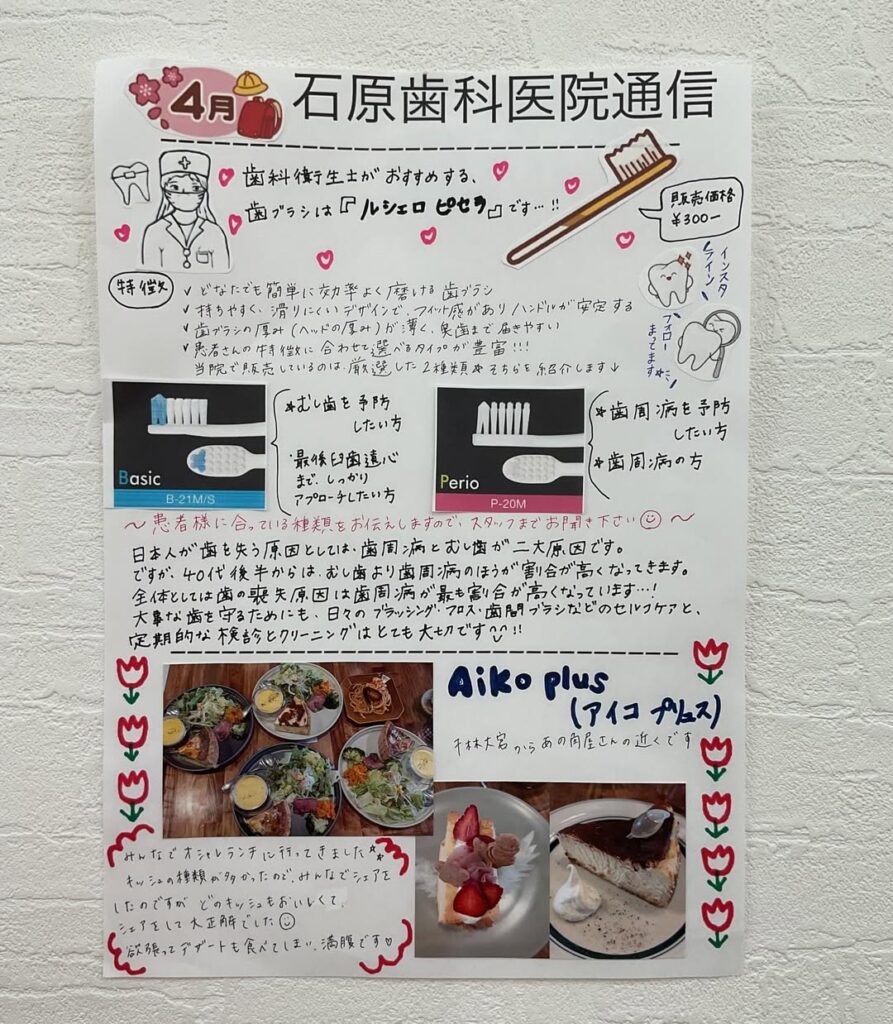 4月
石原歯科医院通信
歯科衛生士がおすすめする、
歯ブラシは『ルシェロ ピセラ』です…!!
販売価格
¥300-
インスタ
ライン
フォロー
まってます
特徴
✓ どなたでも簡単に効率よく磨ける歯ブラシ
✓ 持ちやすく、滑りにくいデザインで、フィット感がありハンドルが安定する
✓ 歯ブラシの厚み(ヘッドの厚み)が薄く、奥歯まで届きやすい
✓ 患者さんの特徴に合わせて選べるタイプが豊富!!!
当院で販売しているのは、厳選した2種類★そちらを紹介します↓
Basic
B-21M/S
★むし歯を予防
したい方
・最後臼歯遠心
まで、しっかり
アプローチしたい方
Perio
P-20M
★歯周病を予防
したい方
★歯周病の方
〜患者様に合っている種類をお伝えしますので、スタッフまでお聞き下さい☺〜
日本人が歯を失う原因としては、歯周病とむし歯が二大原因です。
ですが、40代後半からは、むし歯より歯周病のほうが割合が高くなってきます。
全体としては歯の喪失原因は歯周病が最も割合が高くなっています…!
大事な歯を守るためにも、日々のブラッシング・フロス・歯間ブラシなどのセルフケアと、
定期的な検診とクリーニングはとても大切です!!
Aiko plus
(アイコ プリュス)
千林大宮からあの肉屋さんの近くです
みんなでオシャレランチに行ってきました
キッシュの種類が多かったので、みんなでシェアを
したのですが どのキッシュもおいしくて、
シェアをして大正解でした☺
欲張ってデザートも食べてしまい、満腹です♡